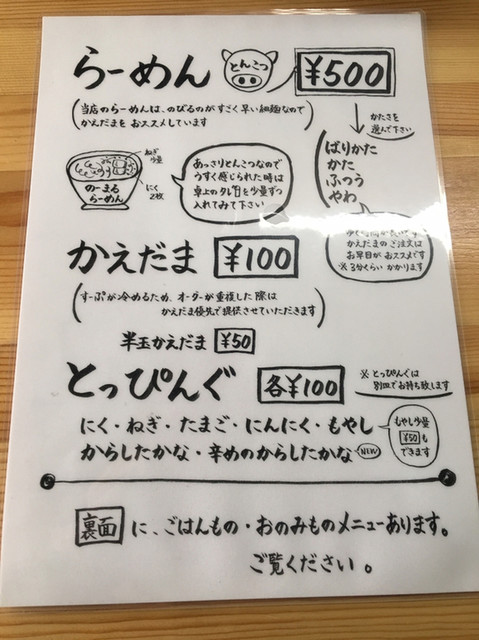 らーめん
とんこつ
¥500
当店のらーめんは、のびるのがすごく早い細麺なので
かえだまをおススメしています
かたさを
選んで下さい
ばりかた
かた
ふつう
やわ
ねぎ
少量
にく
2枚
のーまる
らーめん
あっさりとんこつなので
うすく感じられた時は
卓上のタレを少量ずつ
入れてみて下さい
かえだまのご注文は
お早目がおススメです
※3分くらいかかります
かえだま ¥100
すーぷが冷めるため、オーダーが重複した際は
かえだま優先で提供させていただきます
半玉かえだま ¥50
とっぴんぐ 各¥100
※とっぴんぐは
別皿でお持ち致します
にく・ねぎ・たまご・にんにく・もやし
からしたかな・辛めのからしたかな NEW
もやし少量
¥50も
できます
裏面に、ごはんもの・おのみものメニューあります。
ご覧ください。